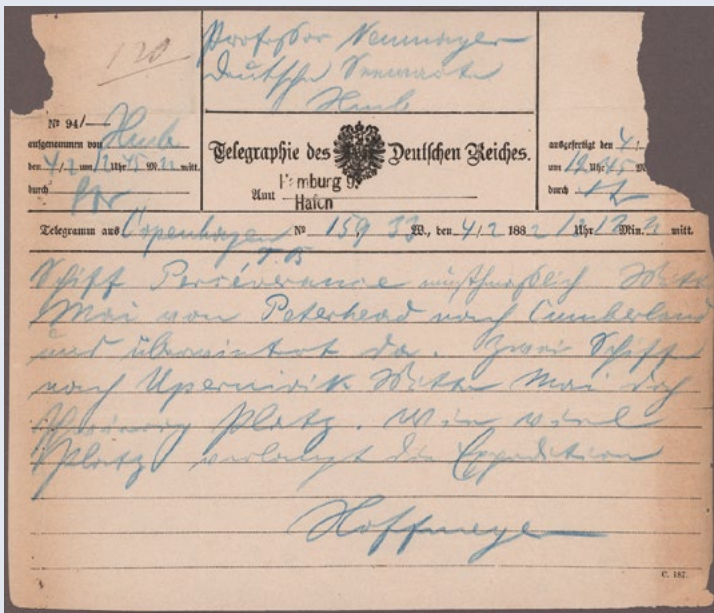 120
Professor Neumayer
Deutsche Seewarte
Hmb
Nº 94/
aufgenommen von Hmb
den 4/2 um 12 Uhr 45 M. mitt.
durch
Telegraphie des Deutschen Reiches.
Amt Hamburg 9
Hafen
ausgefertigt den 4/
um 12 Uhr 45 M
durch
Telegramm aus Copenhagen Nº 159 33 W., den 4/2 1882 12 Uhr 12 Min. mitt.
Schiff Perséverance muthmaßlich Mitte
Mai von Peterhead nach Cumberland
und überwintert da. Zwei Schiff
nach Upernivik Mitte Mai doch
Platz. Wie viel
Platz verlangt die Expedition
Hoffmeyer
C. 187.